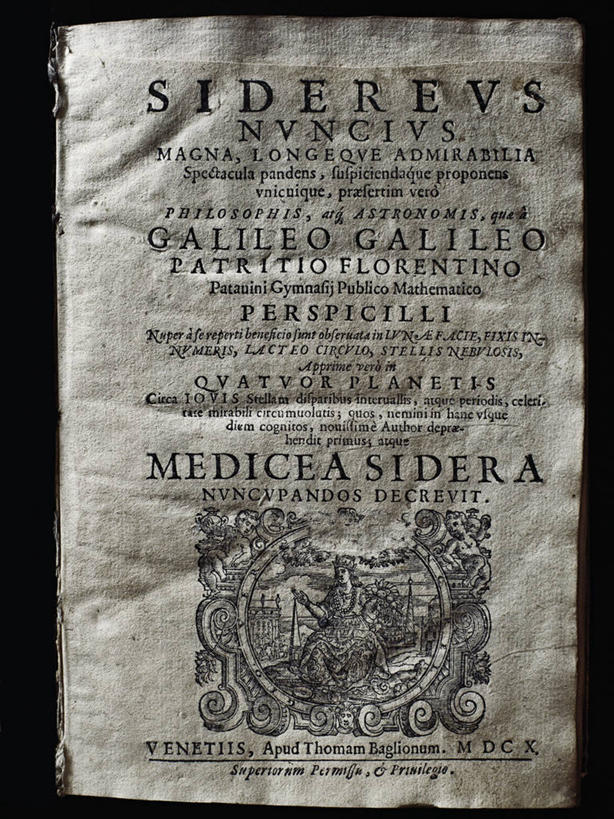 SIDEREVS
NVNCIVS
MAGNA, LONGEQVE ADMIRABILIA
Spectacula pandens, suspiciendaque proponens
vnicuique, præsertim verò
PHILOSOPHIS, atq́ ASTRONOMIS, quæ à
GALILEO GALILEO
PATRITIO FLORENTINO
Patauini Gymnasij Publico Mathematico
PERSPICILLI
Nuper à se reperti beneficio sunt obseruata in LVNÆ FACIE, FIXIS IN-
NVMERIS, LACTEO CIRCVLO, STELLIS NEBVLOSIS,
Apprime verò in
QVATVOR PLANETIS
Circa IOVIS Stellam disparibus interuallis, atque periodis, celeri-
tate mirabili circumuolutis; quos, nemini in hanc vsque
diem cognitos, nouissimè Author depræ-
hendit primus; atque
MEDICEA SIDERA
NVNCVPANDOS DECREVIT.
VENETIIS, Apud Thomam Baglionum. M DC X
Superiorum Permissu, & Priuilegio.